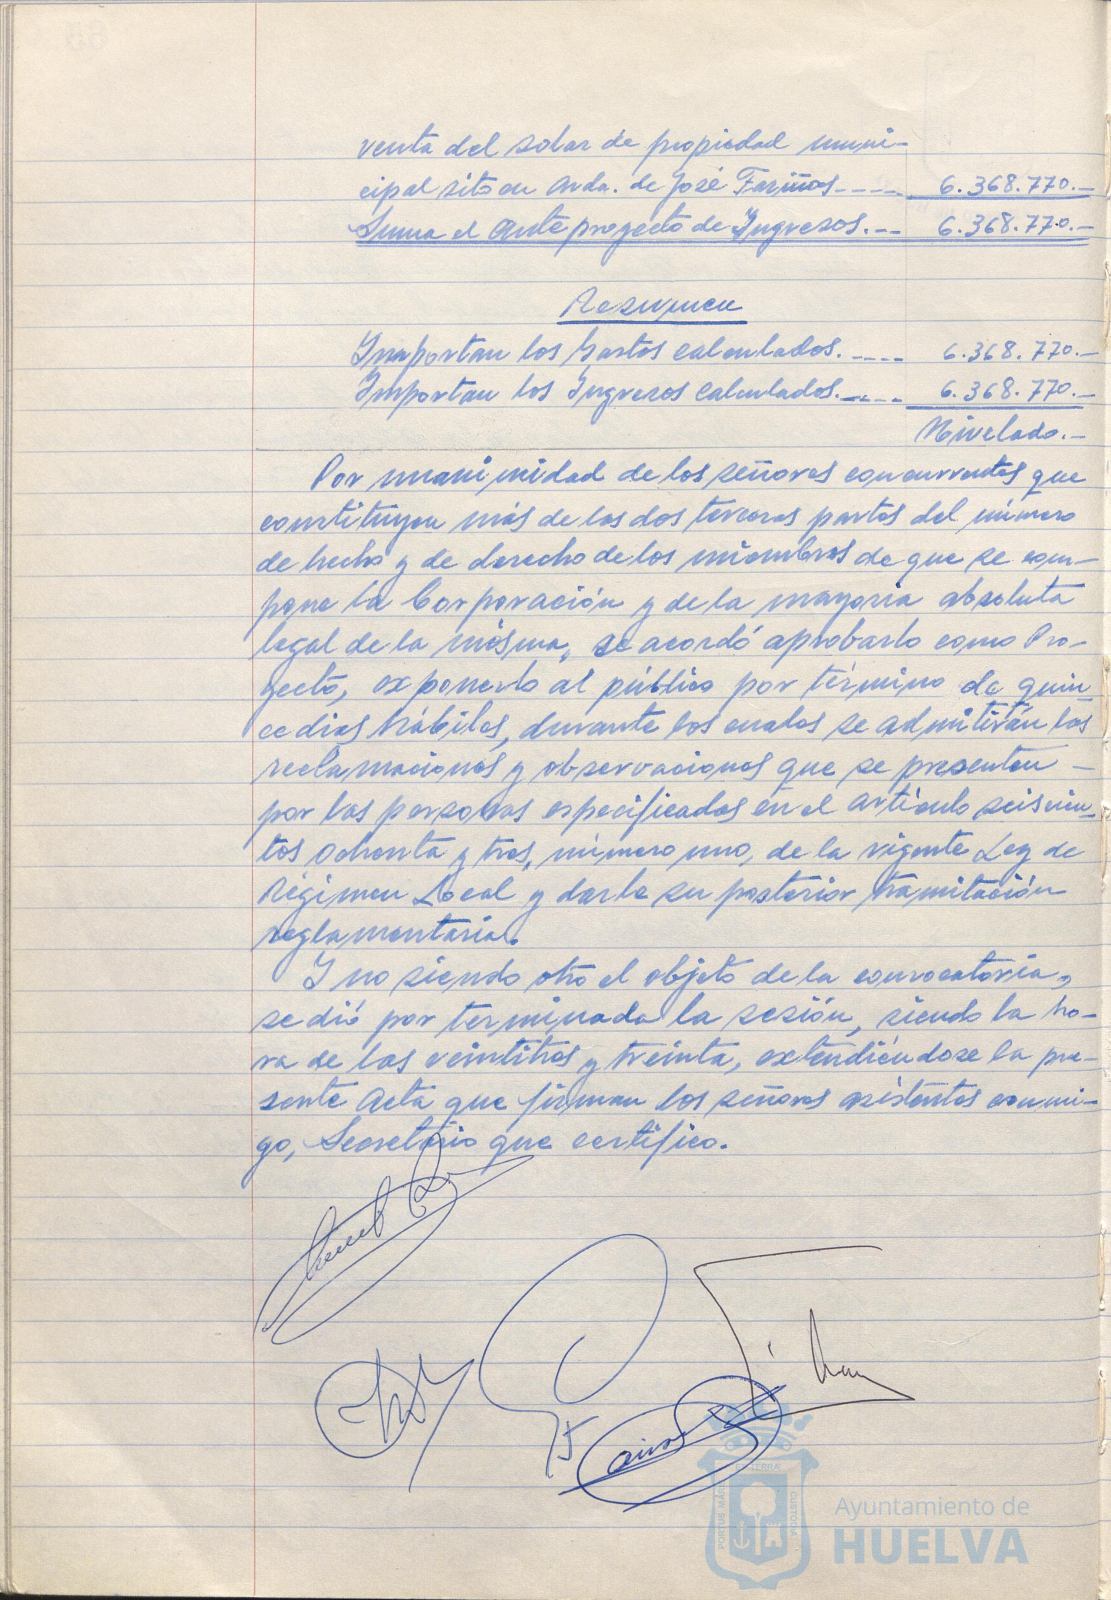 venta del solar de propiedad muni-
cipal sito en Avda. de José Fariñas---- 6.368.770.-
Suma el Anteproyecto de Ingresos.-- 6.368.770.-
Resumen
Importan los Gastos calculados.---- 6.368.770.-
Importan los Ingresos calculados.---- 6.368.770.-
Nivelado.-
Por unanimidad de los señores concurrentes que
constituyen más de las dos terceras partes del número
de hecho y de derecho de los miembros de que se com-
pone la Corporación y de la mayoria absoluta
legal de la misma, se acordó aprobarlo como Pro-
yecto, exponerlo al público por término de quin-
ce dias hábiles, durante los cuales se admitirán las
reclamaciones y observaciones que se presenten -
por las personas especificadas en el artículo seiscien-
tos ochenta y tres, número uno, de la vigente Ley de
Régimen Local y darle su posterior tramitación
reglamentaria.
Y no siendo otro el objeto de la convocatoria,
se dió por terminada la sesión, siendo la ho-
ra de las veintitres y treinta, extendiéndose la pre-
sente Acta que firman los señores asistentes conmi-
go, Secretario que certifico.
PORTUS MARIS
ET TERRAE
CUSTODIA
Ayuntamiento de
HUELVA